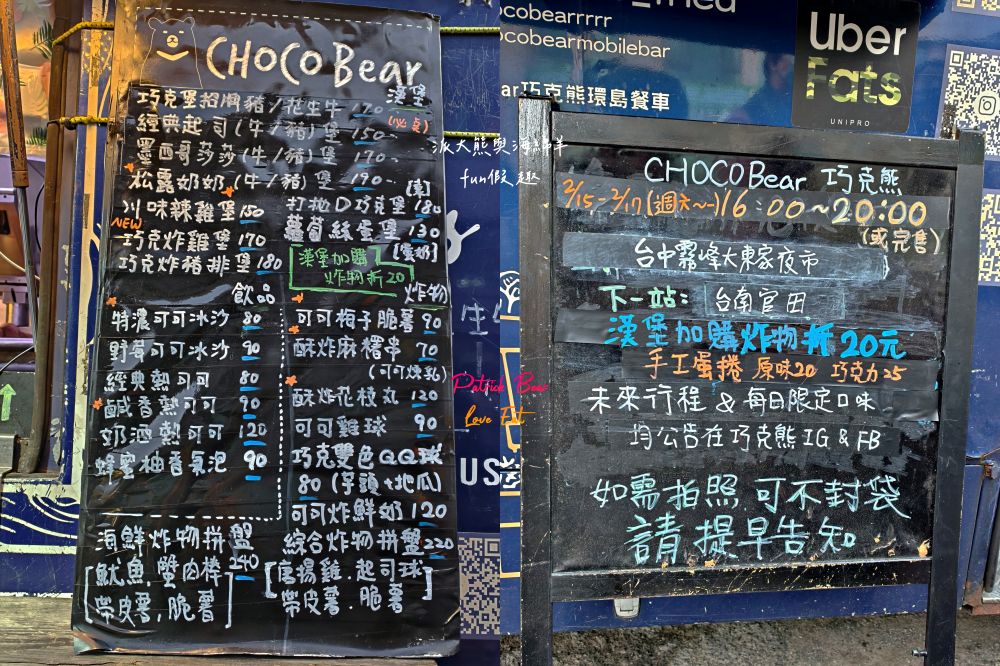 CHOCOBear
漢堡
巧克堡招牌豬/花生牛 170
(必點)
經典起司(牛/豬)堡 150
墨西哥莎莎(牛/豬)堡 170
松露奶奶(牛/豬)堡 190
[素]
川味辣雞堡 150
打拋D巧克堡 180
NEW
巧克炸雞堡 170
蘿蔔絲蛋堡 130
[蛋奶]
巧克炸豬排堡 180
漢堡加購
炸物折20
飲品
特濃可可冰沙 80
野莓可可冰沙 90
經典熱可可 80
鹹香熱可可 90
奶酒熱可可 120
蜂蜜柚香氣泡 90
炸物
可可梅子脆薯 90
酥炸麻糬串 70
(可可煉乳)
酥炸花枝丸 120
可可雞球 90
巧克雙色QQ球
80 (芋頭+地瓜)
可可炸鮮奶 120
海鮮炸物拼盤
240
[魷魚.蟹肉棒
帶皮薯,脆薯]
綜合炸物拼盤 220
[唐揚雞.起司球
帶皮薯.脆薯]
派大熊與海綿羊
fun假趣
Patrick Bear
Love Eat
US
cocobearrrrr
ocobearmobilebar
ar巧克熊環島餐車
Uber
Eats
UNIPRO
CHOCOBear 巧克熊
2/15-2/17(週六~一)16:00~20:00
(或完售)
台中霧峰大東家夜市
下一站: 台南官田
漢堡加購炸物折20元
手工蛋捲 原味20 巧克力25
未來行程 & 每日限定口味
均公告在巧克熊IG & FB
如需拍照可不封袋
請提早告知